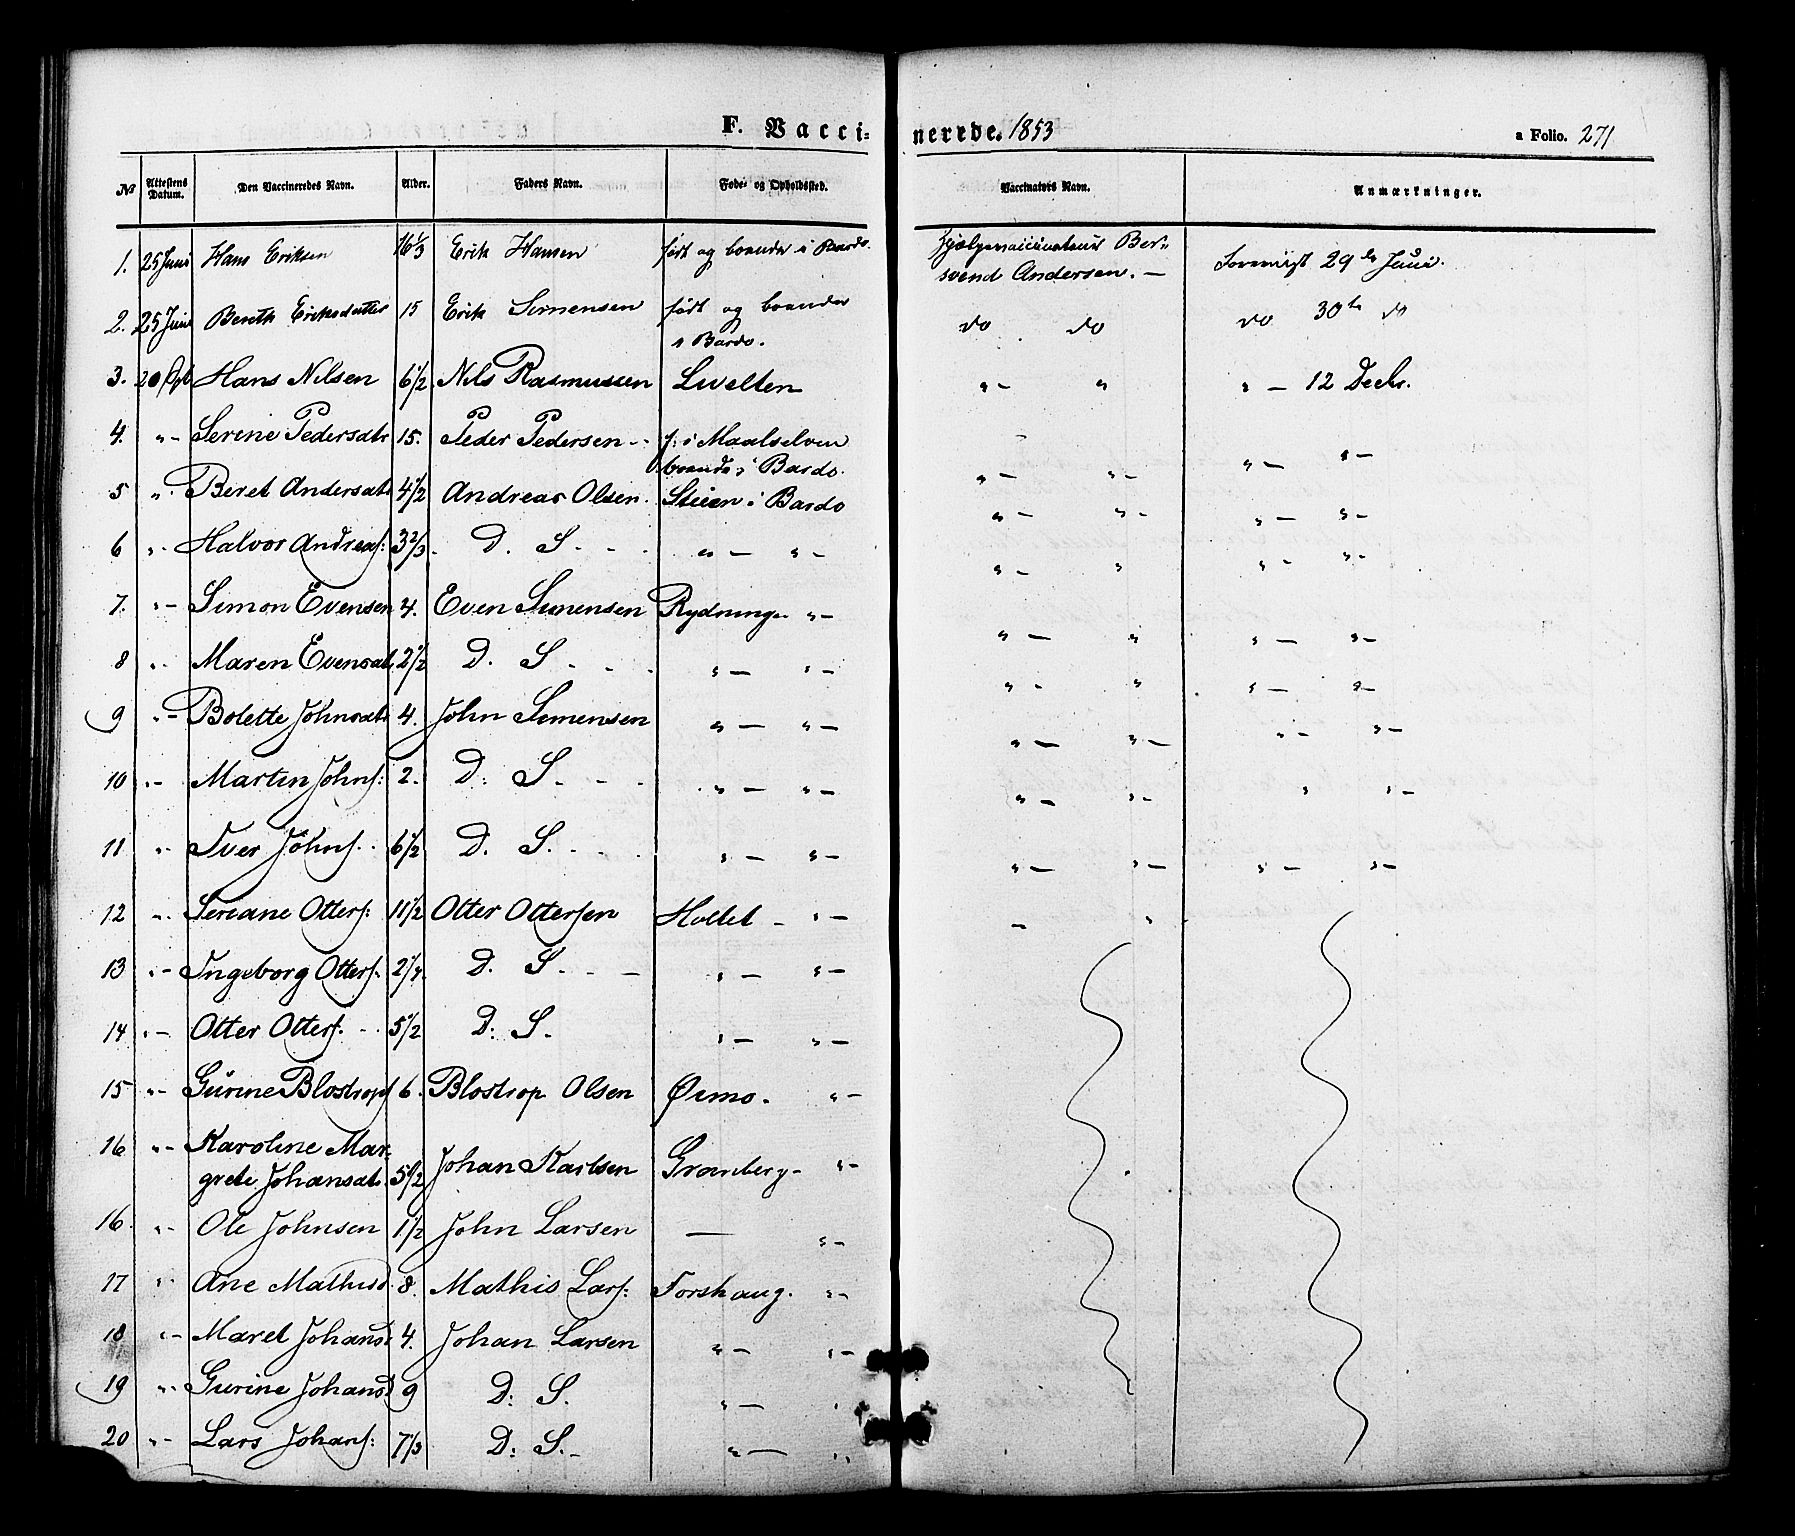 F. Vaccinerede. 1853
a Folio. 271
№ Attestens Datum. Den Vaccineredes Navn. Alder. Faders Navn. Føde- og Opholdssted. Vaccinators Navn. Anmærkninger.
1. 25 Juni Hans Eriksen 16 1/3 Erik Hansen født og boende i Bardo. Hjælpevaccinateur Ber-
svend Andersen. —
29de Juni.
2. 25 Juni Bereth Eriksdatter 15 Erik Simensen født og boende do do do 30te do
i Bardo.
3. 20 Hans Nilsen 6 1/2 Nils Rasmussen " — " " — 12 Decbr.
4. " — Serine Pedersdtr 15. Peder Pedersen - - f: i Maalselven
boende i Bardo. " — " — " — " —
5 " . Beret Andersdt 4 1/2 Andreas Olsen. Steien i Bardo " — " — " — " —
6 " . Halvor Andreasf: 3 2/3 D. S. - - " — " — " — " " — " —
7. " — Simon Evensen 4. Even Simensen Rydning " — " — " " — " —
8 " . Maren Evensdt. 2 1/2 D. S. - - " — " — " — " " — " —
9 " — Bolette Johnsdt 4. John Simensen " — " — " — " — " — " —
10 " — Martin Johnf: 2. D: S. - - " — " — " — " — " " —
11 " . Iver Johnf. . 6 1/2 D. S. - - " — " — " — " — " — " —
12 " . Otterf: 11 1/2 Otter Otterfen Holtet - " — — "
13 " — Ingeborg Otterf. D. S. - - — " — " —
14 " — Otter Otterf. - . 5 1/2 D: S. " — " —
15 " — Gurine Blostropd 6. Blostrop Olsen Ørmo. " —
16 " — Karoline Mar-
grete Johansdt. 5 1/2 Johan Karlsen Granberg - " —
16. " . Ole Johnsen 1 1/2 John Larsen — " —
17 " . Ane Mathisd. 8. Mathis Larf: Forshaug. " —
18 " — Maret Johansd 4. Johan Larsen " — " —
19 " . Gurine Johansd 9 D: S. " — "
20 " — Lars Johanf: 7 1/3 D: S. — " — "